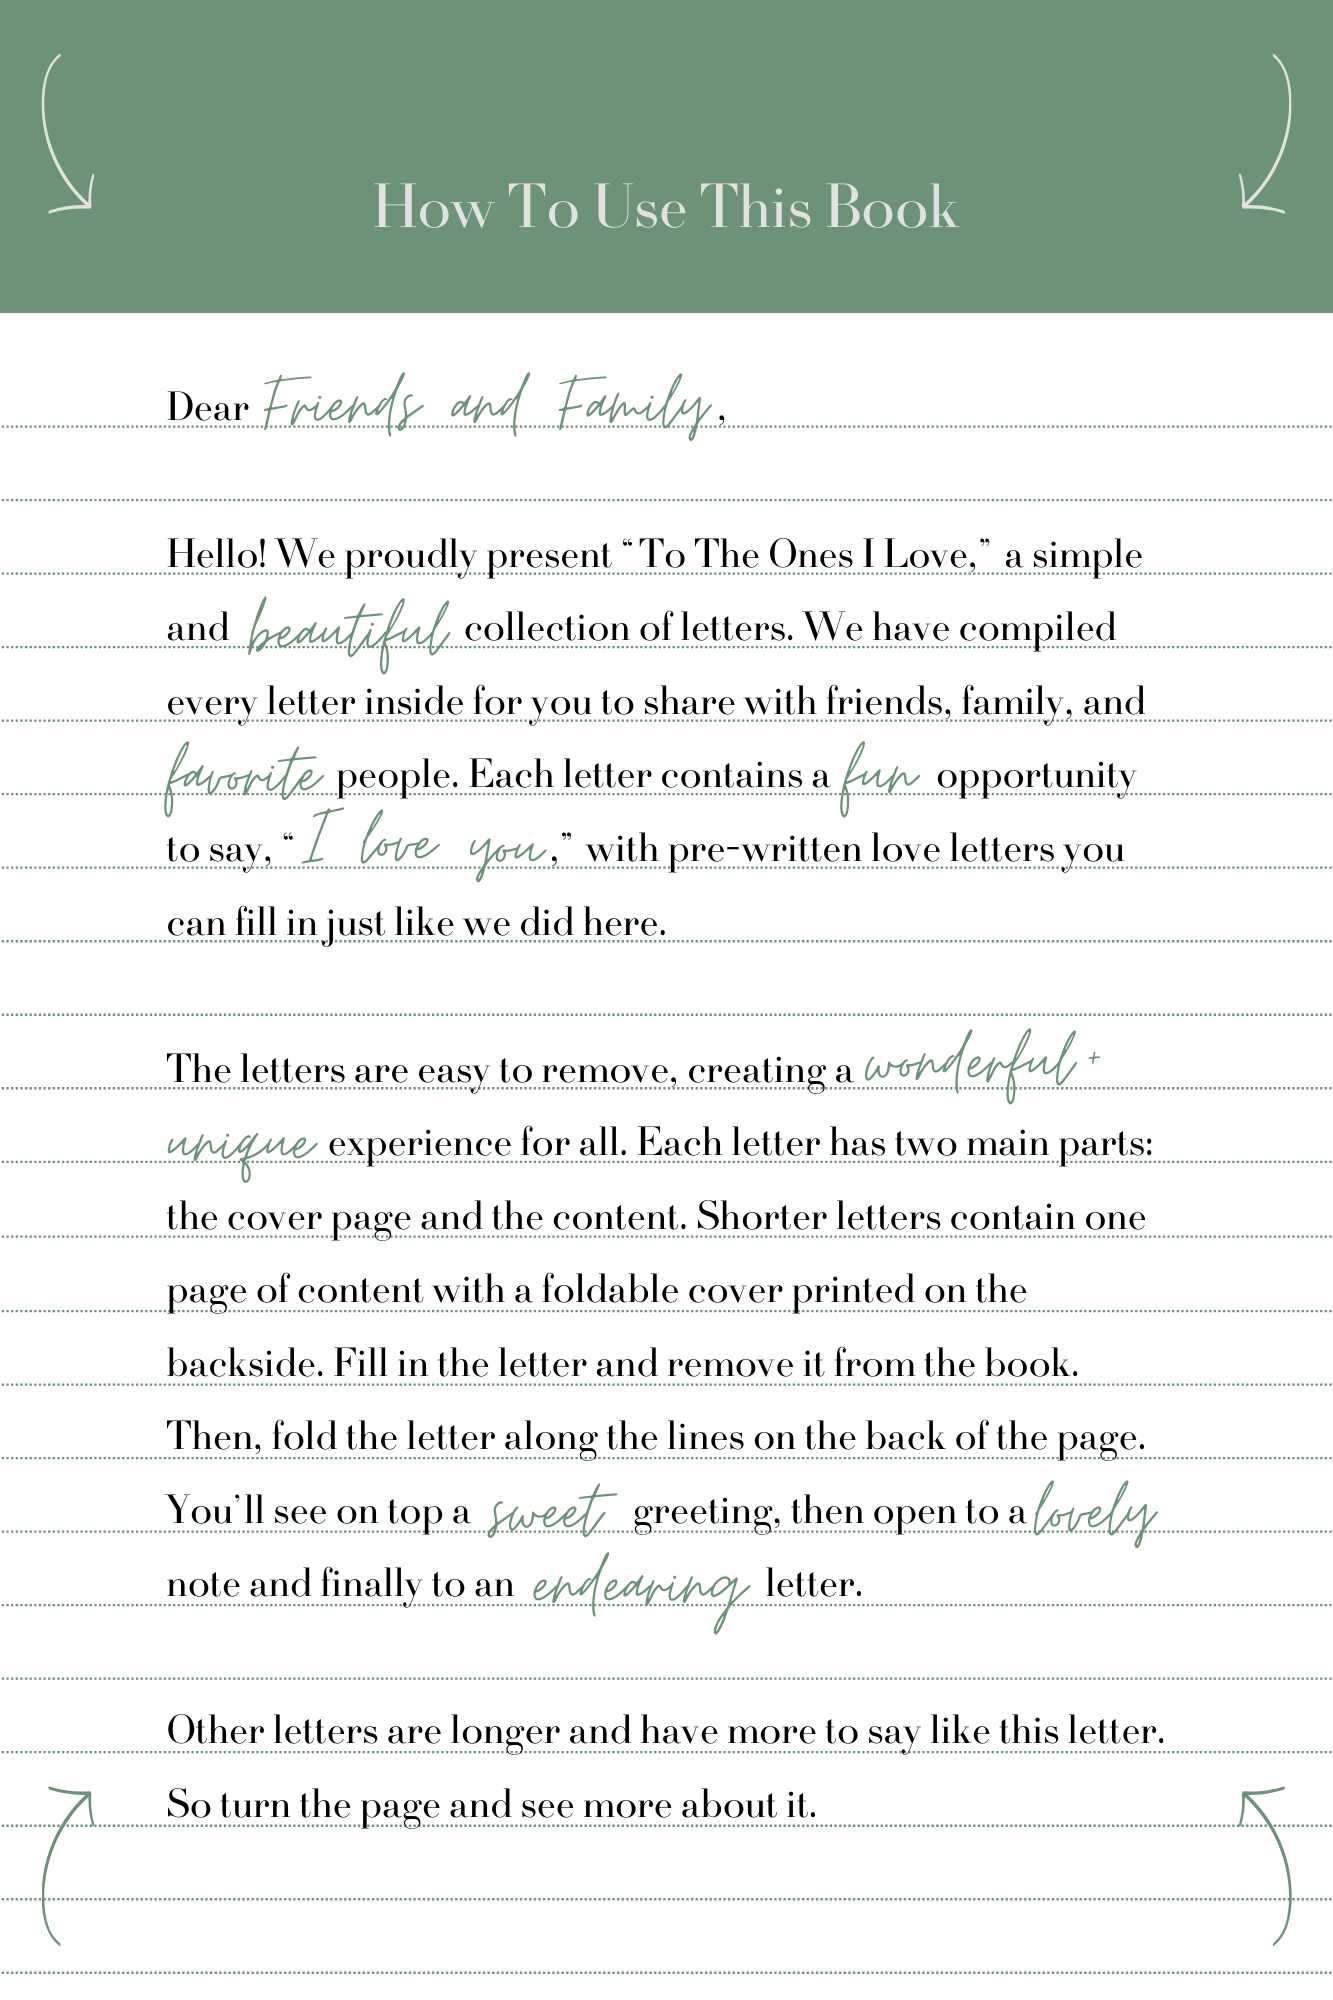 How To Use This Book
Dear Friends and Family,
Hello! We proudly present “To The Ones I Love,” a simple
and beautiful collection of letters. We have compiled
every letter inside for you to share with friends, family, and
favorite people. Each letter contains a fun opportunity
to say, “I love you,” with pre-written love letters you
can fill in just like we did here.
The letters are easy to remove, creating a wonderful +
unique experience for all. Each letter has two main parts:
the cover page and the content. Shorter letters contain one
page of content with a foldable cover printed on the
backside. Fill in the letter and remove it from the book.
Then, fold the letter along the lines on the back of the page.
You’ll see on top a sweet greeting, then open to a lovely
note and finally to an endearing letter.
Other letters are longer and have more to say like this letter.
So turn the page and see more about it.